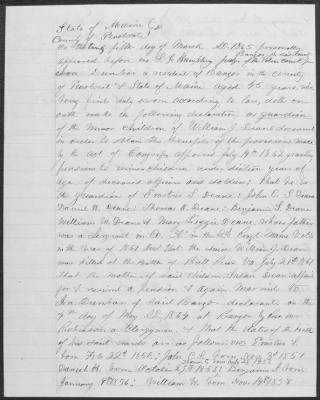 State of Maine
County of Penobscot
On this twenty fifth day of March AD. 1865 personally
appeared before me Judge of the Police Court for
Dunbar a resident of Bangor in the County
of Penobscot & State of Maine aged 45 years, who
being first duly sworn according to law, doth on
oath make the following declaration as guardian
of the minor children of William J. Deane deceased
in order to obtain the benefits of the provisions made
by the act of Congress approved July 14th 1862 granting
pensions to minor children under sixteen years of
age of deceased officers and soldiers; That he is
the guardian of Erastus S. Deane; John C. S. Deane
Daniel H. Deane; Thomas C. Deane; Benjamin S. Deane
William N. Deane & Mary Lizzie Deane, whose father
was a Sergeant in Co. in the Regt. Maine Vols
in the war of 1861 and that the William J. Deane
was killed at the Battle of Bull Run Va. July 21st 1861
That the mother of said children Susan Deane applied
for & received a pension & again Married
Dunbar of said Bangor declarant on the
7th day of May AD. 1864. at Bangor by
Robinson a Clergyman. & that the dates of birth
of his said wards are as follows: Erastus S.
born Feb 22d 1850; John C. S. born 3d 1851
Daniel H. born October 1853; Benjamin S. born
January 8th 1856; William N. born Nov 14th 1858